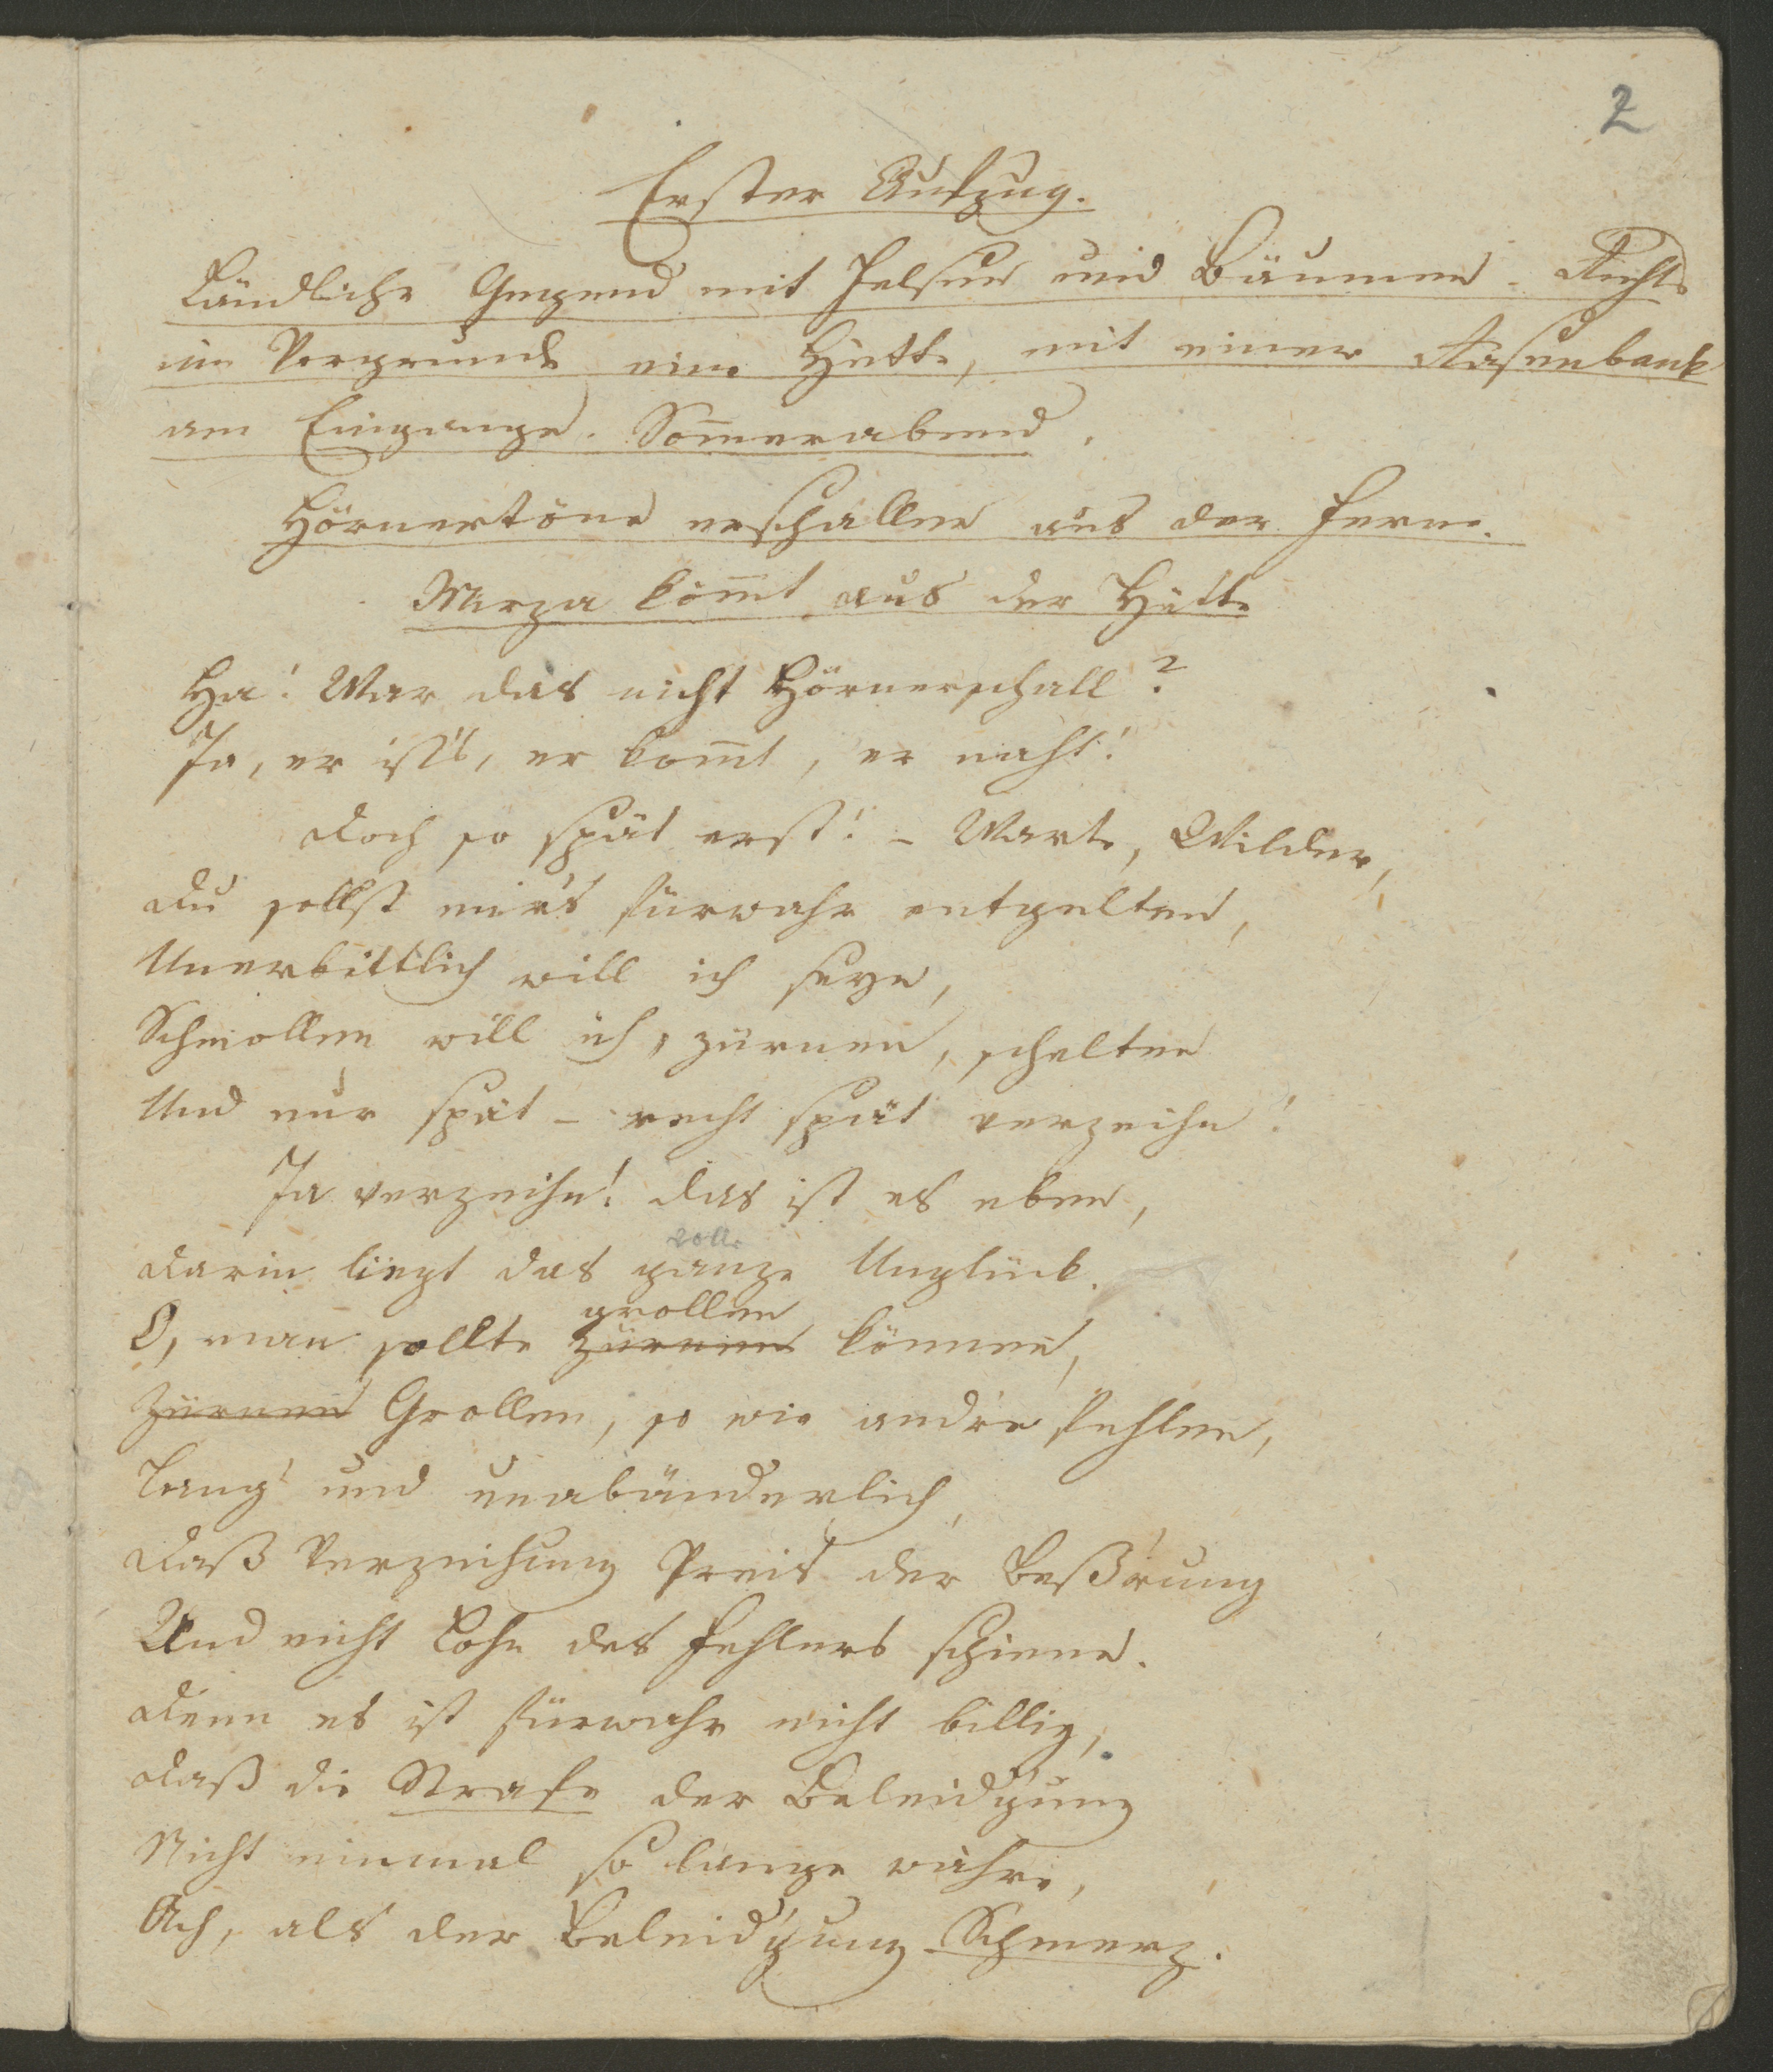 2
Erster Aufzug.
Ländliche Gegend mit Felsen und Bäumen. Rechts
im Vorgrunde eine Hütte, mit einer Rasenbank
am Eingange. Som̄erabend.
Hörnertöne erschallen aus der Ferne.
Mirza kom̄t aus der Hütte
Ha! War das nicht Hörnerschall?
Ja, er ist's, er kom̄t, er naht!
Doch so spät erst! – Warte, Wilder,
Du sollst mir's fürwahr entgelten,
Unerbittlich will ich seyn,
Schmollen will ich, zürnen, schelten
Und nur spät – recht spät verzeihn!
Ja verzeihn! das ist es eben,
volle
Darin liegt das ganze Unglück.
grollen
O, man sollte zürnen können,
Zürnen Grollen, so wie andre fehlen,
Lang' und unabänderlich,
Daß Verzeihung Preis der Beß'rung
Und nicht Lohn des Fehlers schiene.
Denn es ist fürwahr nicht billig,
Daß die Strafe der Beleid'gung
Nicht einmal so lange währe,
Ach, als der Beleid'gung Schmerz.